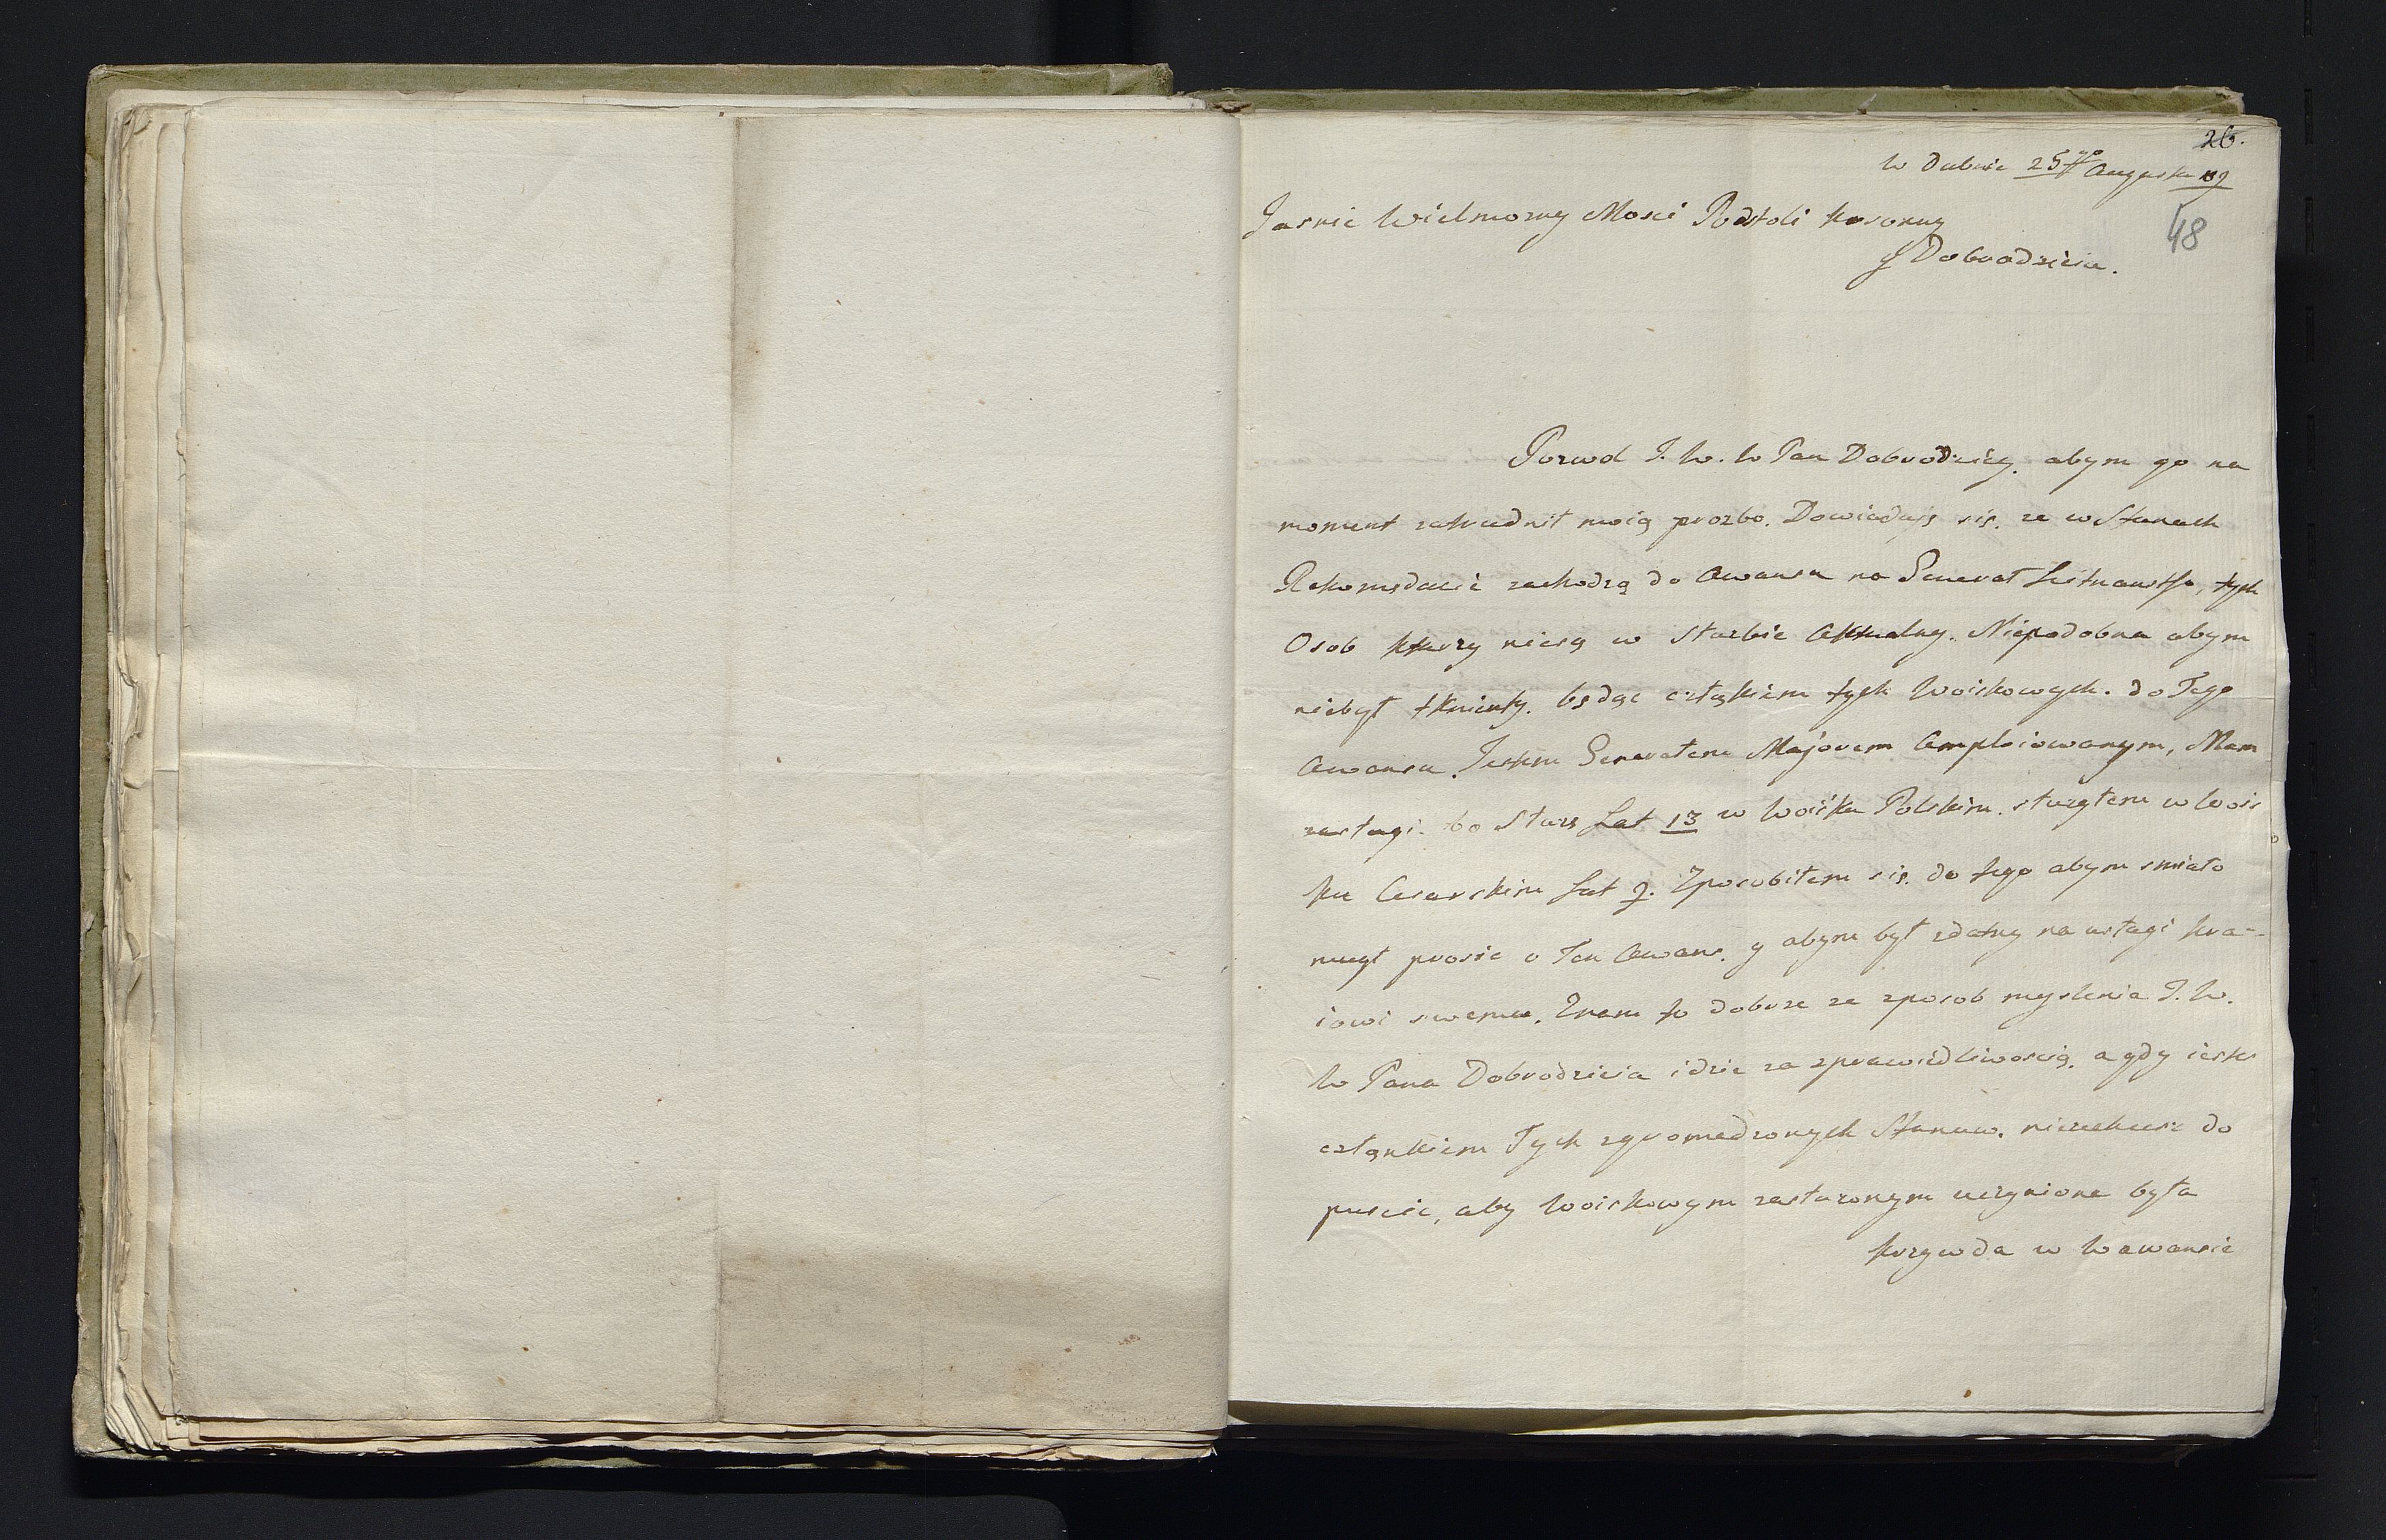 26.
w Dubnie 25go Augusta 89
48
Jasnie Wielmozny Mosci Podstoli koronny
y Dobrodzieiu.
Pozwol J. W. W Pan Dobrodziey. abym go na
moment zatrudnił moią prozbo. Dowiaduię się. ze w Stanach
Rekomędacie zachodzą do Awansu na Generał Leitnantstwo, tych
Osob kturzy niesą w słuzbie Aktualny. Niepodobna abym
niebył tknienty. będąc człąkiem tych Woiskowych. do Tego
Awansu. Jestem Generałem Majorem Amploiowanym, Mam
zasługi. bo Słuzę Lat 13 w Woisku Polskim. słuzyłem w Wois
ku Cesarskim Lat 9. Zposobiłem się. do tego abym smiało
mugł prosic o Ten Awans. y abym był zdatny na usługi kra-
iowi swemu. Znam to dobrze ze zposob myslenia J. W.
W Pana Dobrodzieia idzie za zprawiedliwoscią. a gdy iestes
człąnkiem Tych zgromadzonych Stanuw. niezechcesz do
puscic, aby Woiskowym zasłuzonym uczyniona była
krzywda w Wawansie